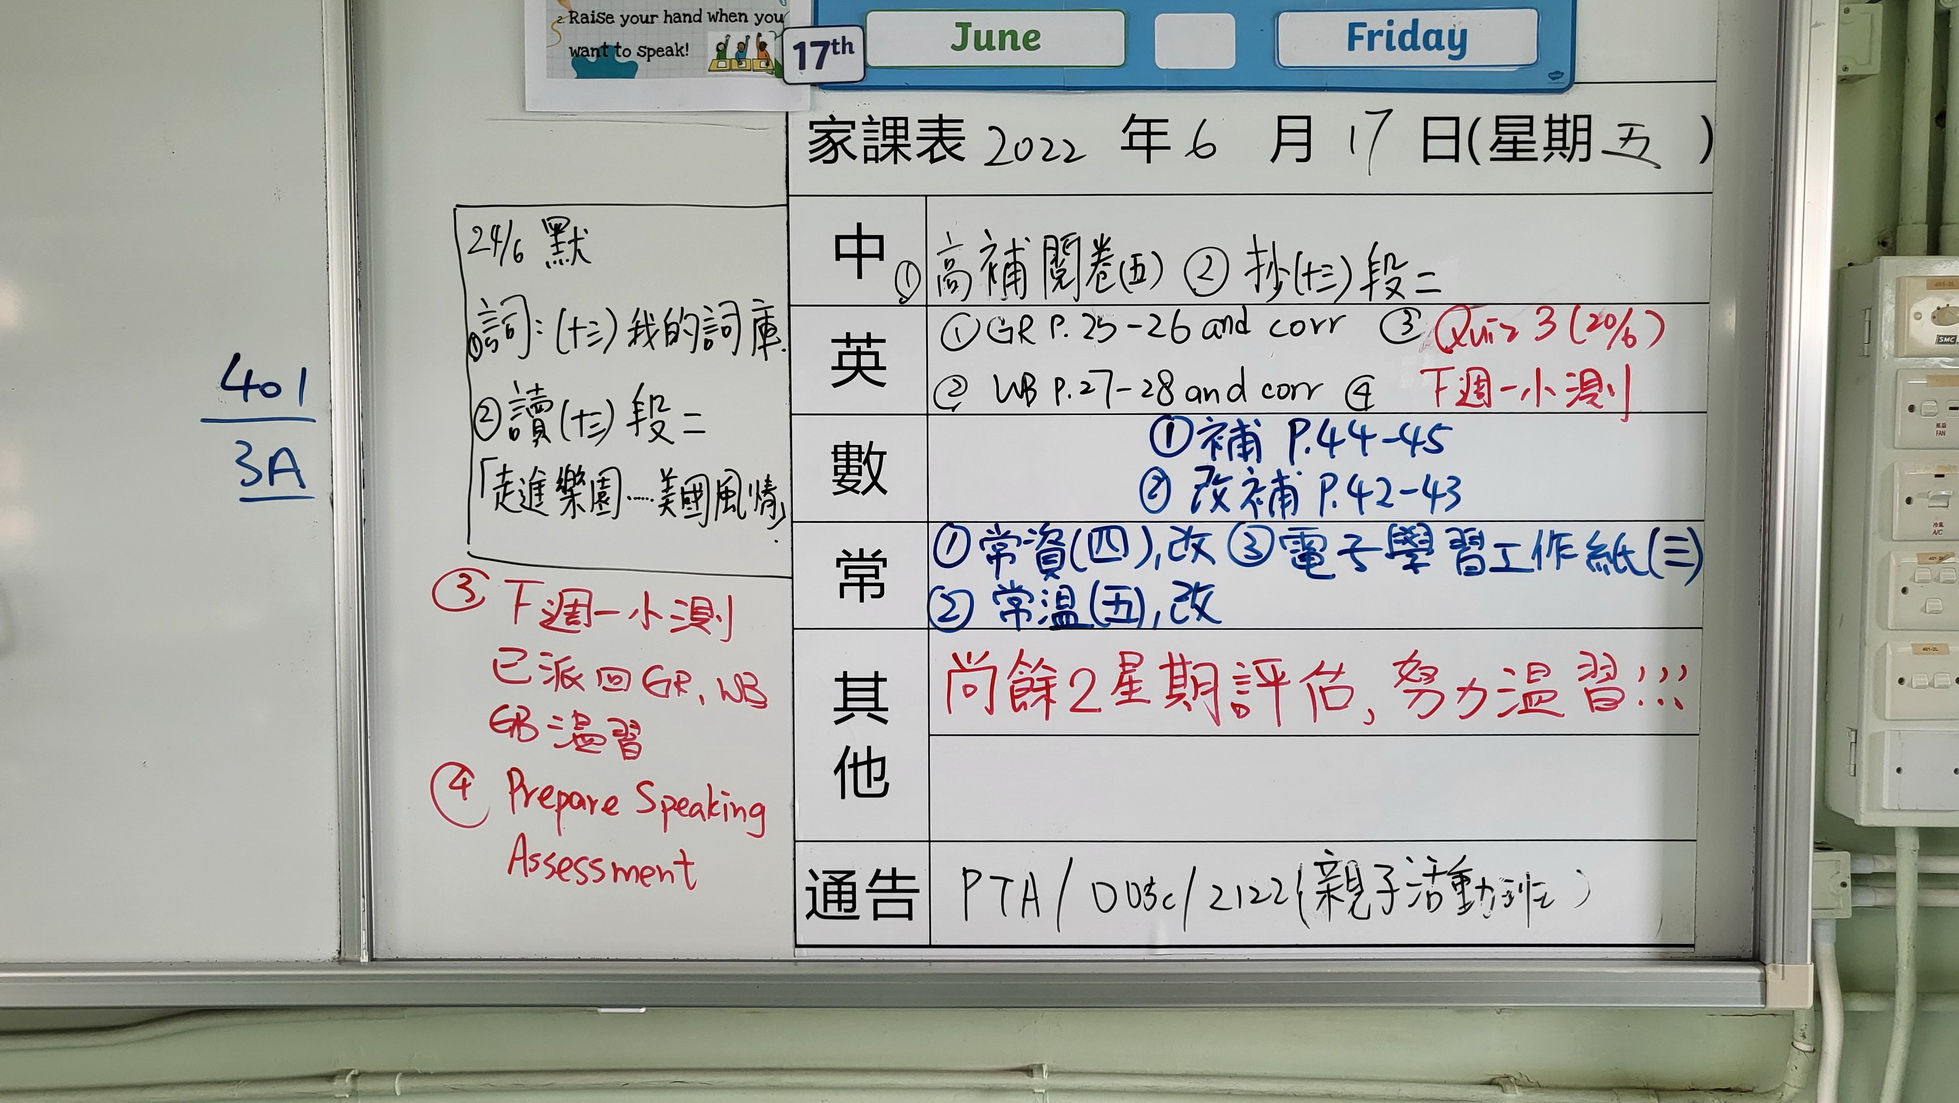 2. Raise your hand when you
want to speak!
17th June Friday
家課表 2022 年 6 月 17 日(星期五)
401
3A
24/6 默
①詞：(十三) 我的詞庫.
②讀(十三) 段二
「走進樂園……美國風情」
③ 下週一小測
已派回 GR, WB
GB 溫習
④ Prepare Speaking
Assessment
中 ①高補閱卷(五) ② 抄(十三) 段二
英 ① GR P. 25-26 and corr ③ Quiz 3 (20/6)
② WB P.27-28 and corr ④ 下週一小測
數 ①補 P.44-45
② 改補 P.42-43
常 ①常資(四),改 ③電子學習工作紙(三)
② 常溫(五),改
其他 尚餘2星期評估, 努力溫習!!!
通告 PTA/003c/2122(親子活動班)